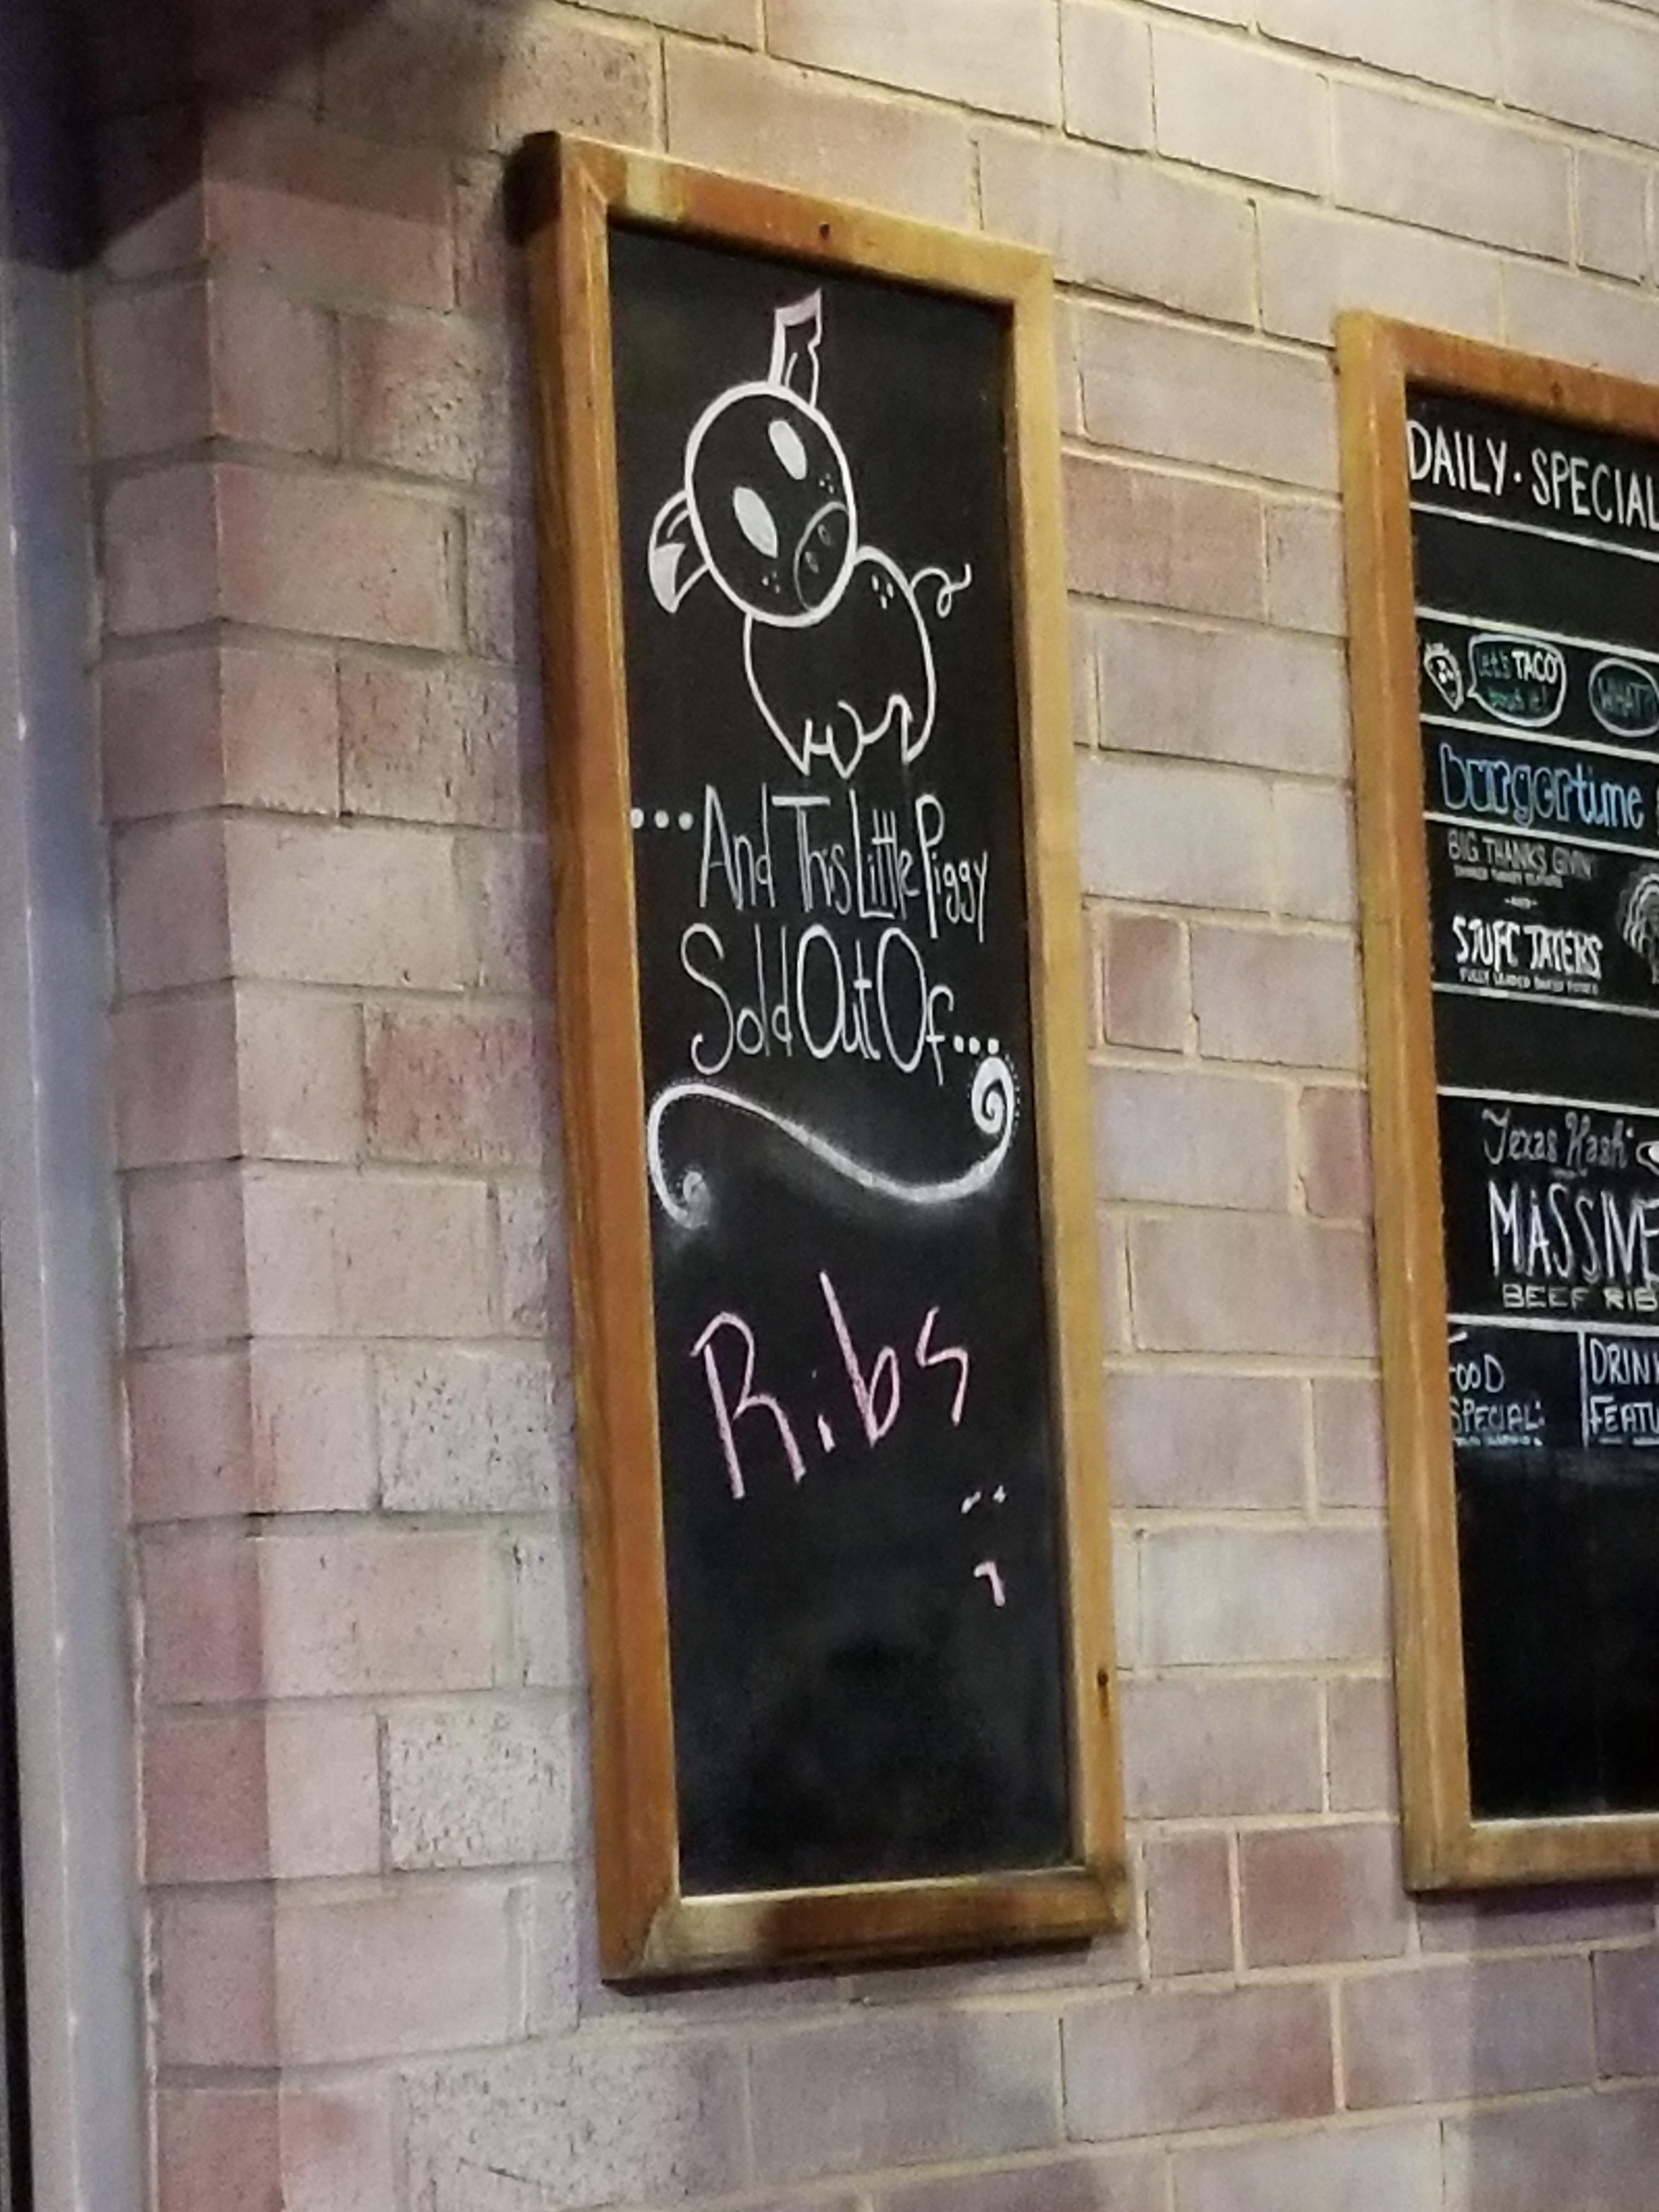 ...And This Little Piggy
Sold Out Of...
Ribs
DAILY · SPECIAL
Let's TACO
'bout it!
WHAT?
burgertime
BIG THANKS GIVIN'
SMOKED TURKEY
STUFT TATERS
FULLY LOADED BAKED
Texas Hash
MASSIVE
BEEF RIB
FOOD
SPECIAL:
DRINK
FEATU